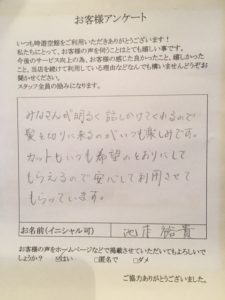 お客様アンケート
いつも時遊空館をご利用いただきありがとうございます!
私たちにとって、お客様の声を伺うことはとても嬉しい事です。
今後のサービス向上の為、お客様の感じた良かったこと、嬉しかっ
たこと、当店を続けて利用している理由などなんでも構いませんどうぞお
聞かせください。
スタッフ全員の励みになります。
みなさんが明るく話しかけてくれるので
髪を切りに来るのがいつも楽しみです。
カットもいつも希望のとおりにして
もらえるので安心して利用させて
もらっています。
お名前(イニシャル可)
お客様の声をホームページなどで掲載させていただいてもよろしいで
しょうか? ☑はい □匿名で □ダメ
ご協力ありがとうございました。